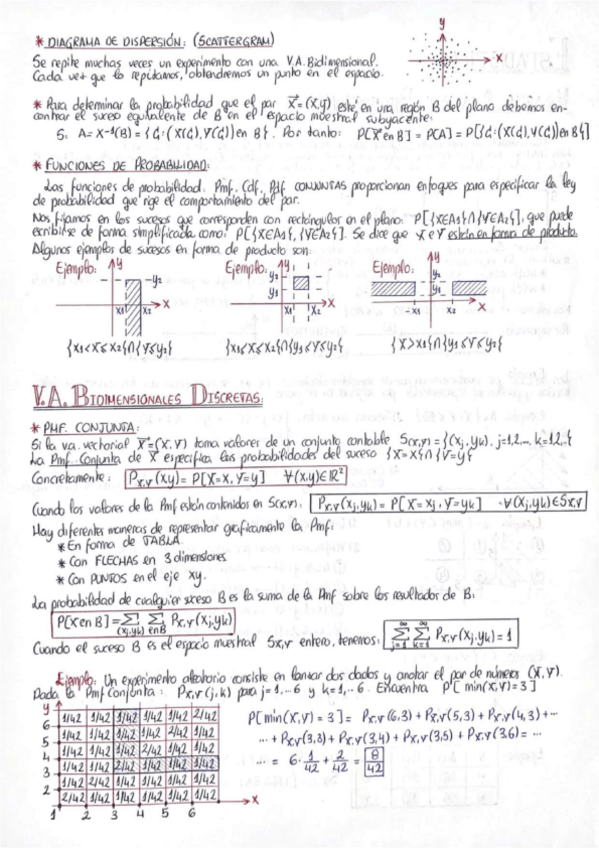 * DIAGRAMA DE DISPERSIÓN: (SCATTERGRAM)
Se repite muchas veces un experimento con una V.A. Bidimensional.
Cada vez que lo repitamos, obtendremos un punto en el espacio.
y
x
* Para determinar la probabilidad que el par X⃗=(X,Y) esté en una región B del plano debemos en-
contrar el suceso equivalente de B en el espacio muestral subyacente:
Si A = X⁻¹(B) = {ζ: (X(ζ), Y(ζ)) en B}. Por tanto: P[X⃗ en B] = P[A] = P[{ζ: (X(ζ), Y(ζ)) en B}]
* FUNCIONES DE PROBABILIDAD:
Las funciones de probabilidad. Pmf, Cdf, Pdf CONJUNTAS proporcionan enfoques para especificar la ley
de probabilidad que rige el comportamiento del par.
Nos fijamos en los sucesos que corresponden con rectángulos en el plano: P[{X∈A1}∩{Y∈A2}], que puede
escribirse de forma simplificada como: P[{X∈A1},{Y∈A2}]. Se dice que X e Y están en forma de producto.
Algunos ejemplos de sucesos en forma de producto son:
Ejemplo: y y2 x1 x2 x
Ejemplo: y y2 y1 x1 x2 x
Ejemplo: y y2 y1 -x1 x1 x
{x1<X≤x2}∩{Y≤y2}
{x1≤X≤x2}∩{y1≤Y≤y2}
{X>x1}∩{y1≤Y≤y2}
V.A. BIDIMENSIONALES DISCRETAS:
* PMF. CONJUNTA:
Si la va. vectorial X⃗=(X,Y) toma valores de un conjunto contable Sx,y = {(xj,yk), j=1,2,..., k=1,2,..}
La Pmf. Conjunta de X⃗ especifica las probabilidades del suceso {X=x}∩{Y=y}
Concretamente: Px,y(x,y) = P[X=x, Y=y] ∀(x,y)∈ℝ²
Cuando los valores de la Pmf están contenidos en Sx,y: Px,y(xj,yk) = P[X=xj, Y=yk] ∀(xj,yk)∈Sx,y
Hay diferentes maneras de representar gráficamente la Pmf:
* En forma de TABLA.
* Con FLECHAS en 3 dimensiones
* Con PUNTOS en el eje xy.
La probabilidad de cualquier suceso B es la suma de la Pmf sobre los resultados de B:
P[X en B] = Σ Σ Px,y(xj,yk)
(xj,yk) en B
Cuando el suceso B es el espacio muestral Sx,y entero, tenemos: Σ Σ Px,y(xj,yk) = 1
j=1 k=1 ∞ ∞
Ejemplo: Un experimento aleatorio consiste en lanzar dos dados y anotar el par de números (X,Y).
Dada la Pmf Conjunta: Px,y(j,k) para j=1,..6 y k=1,..6. Encuentra P[min(X,Y)=3]
y
6 1/42 1/42 1/42 1/42 1/42 2/42
5 1/42 1/42 1/42 1/42 2/42 1/42
4 1/42 1/42 1/42 2/42 1/42 1/42
3 1/42 1/42 2/42 1/42 1/42 1/42
2 1/42 2/42 1/42 1/42 1/42 1/42
2/42 1/42 1/42 1/42 1/42 1/42 x
1 2 3 4 5 6
P[min(X,Y)=3] = Px,y(6,3) + Px,y(5,3) + Px,y(4,3) + ...
... + Px,y(3,3) + Px,y(3,4) + Px,y(3,5) + Px,y(3,6) = ...
... = 6·1/42 + 2/42 = 8/42